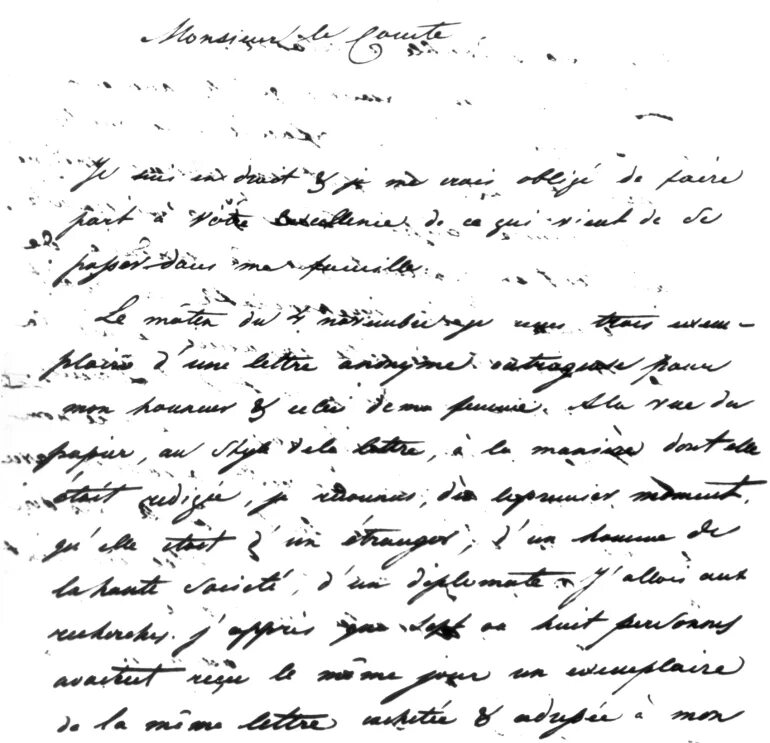 Monsieur le Comte
Je suis en droit & je me crois obligé de faire
part à Votre Excellence de ce qui vient de se
passer dans ma famille.
Le matin du 4 novembre je reçus trois exem-
plaires d'une lettre anonyme outrageuse pour
mon honneur & celui de ma femme. A la vue du
papier, au style de la lettre, à la manière dont elle
était redigée, je reconnus dès le premier moment
qu'elle était d'un étranger, d'un homme de
la haute société, d'un diplomate. J'allois aux
recherches. j'appris que sept ou huit personnes
avaient reçu le même jour un exemplaire
de la même lettre cachetée & adressée à mon